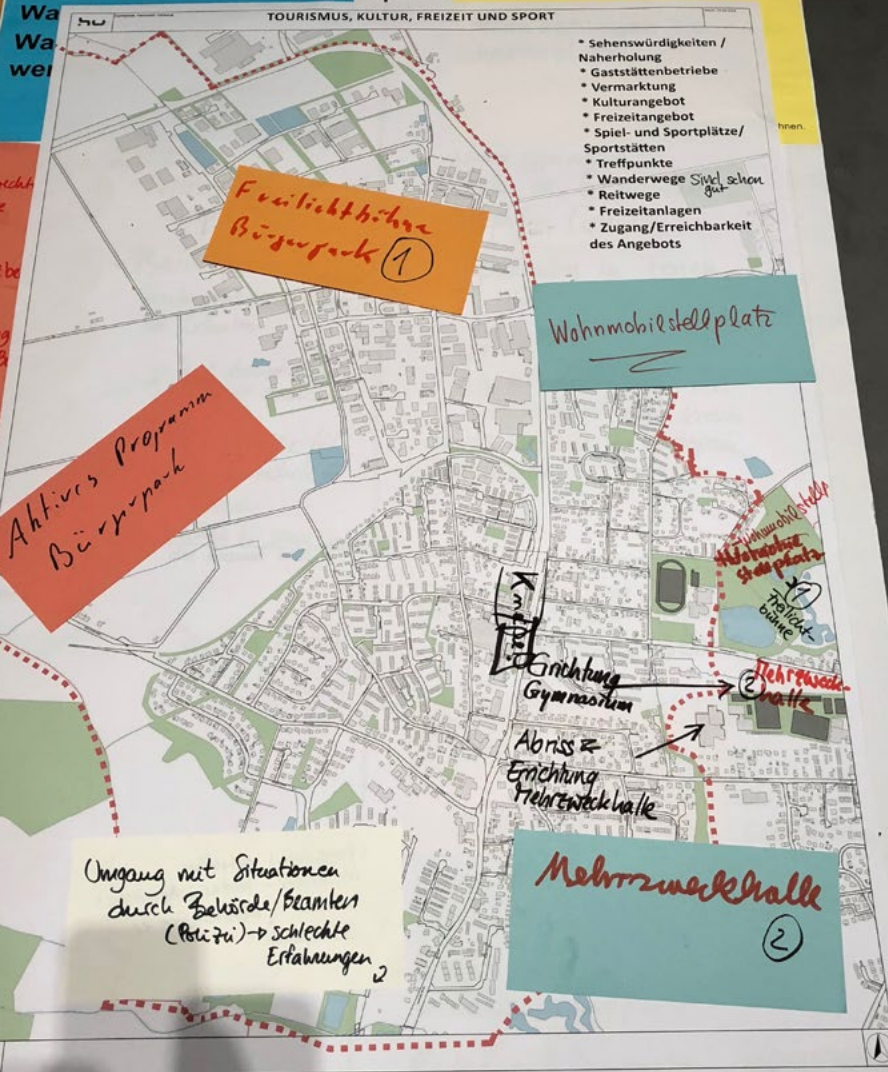 Wa
Wa
wer
TOURISMUS, KULTUR, FREIZEIT UND SPORT
* Sehenswürdigkeiten /
Naherholung
* Gaststättenbetriebe
* Vermarktung
* Kulturangebot
* Freizeitangebot
* Spiel- und Sportplätze/
Sportstätten
* Treffpunkte
* Wanderwege Sind schon
gut
* Reitwege
* Freizeitanlagen
* Zugang/Erreichbarkeit
des Angebots
hnen.
Freilichtbühne
Bürgerpark 1
Wohnmobilstellplatz
Aktives Programm
Bürgerpark
Wohnmobilstellp
Wohnmobil
stellplatz
*1
Freilicht
bühne
Errichtung
Gymnasium
2 Mehrzweck-
halle
Abriss &
Errichtung
Mehrzweckhalle
Umgang mit Situationen
durch Behörde/Beamten
(Polizei) → schlechte
Erfahrungen
Mehrzweckhalle
2